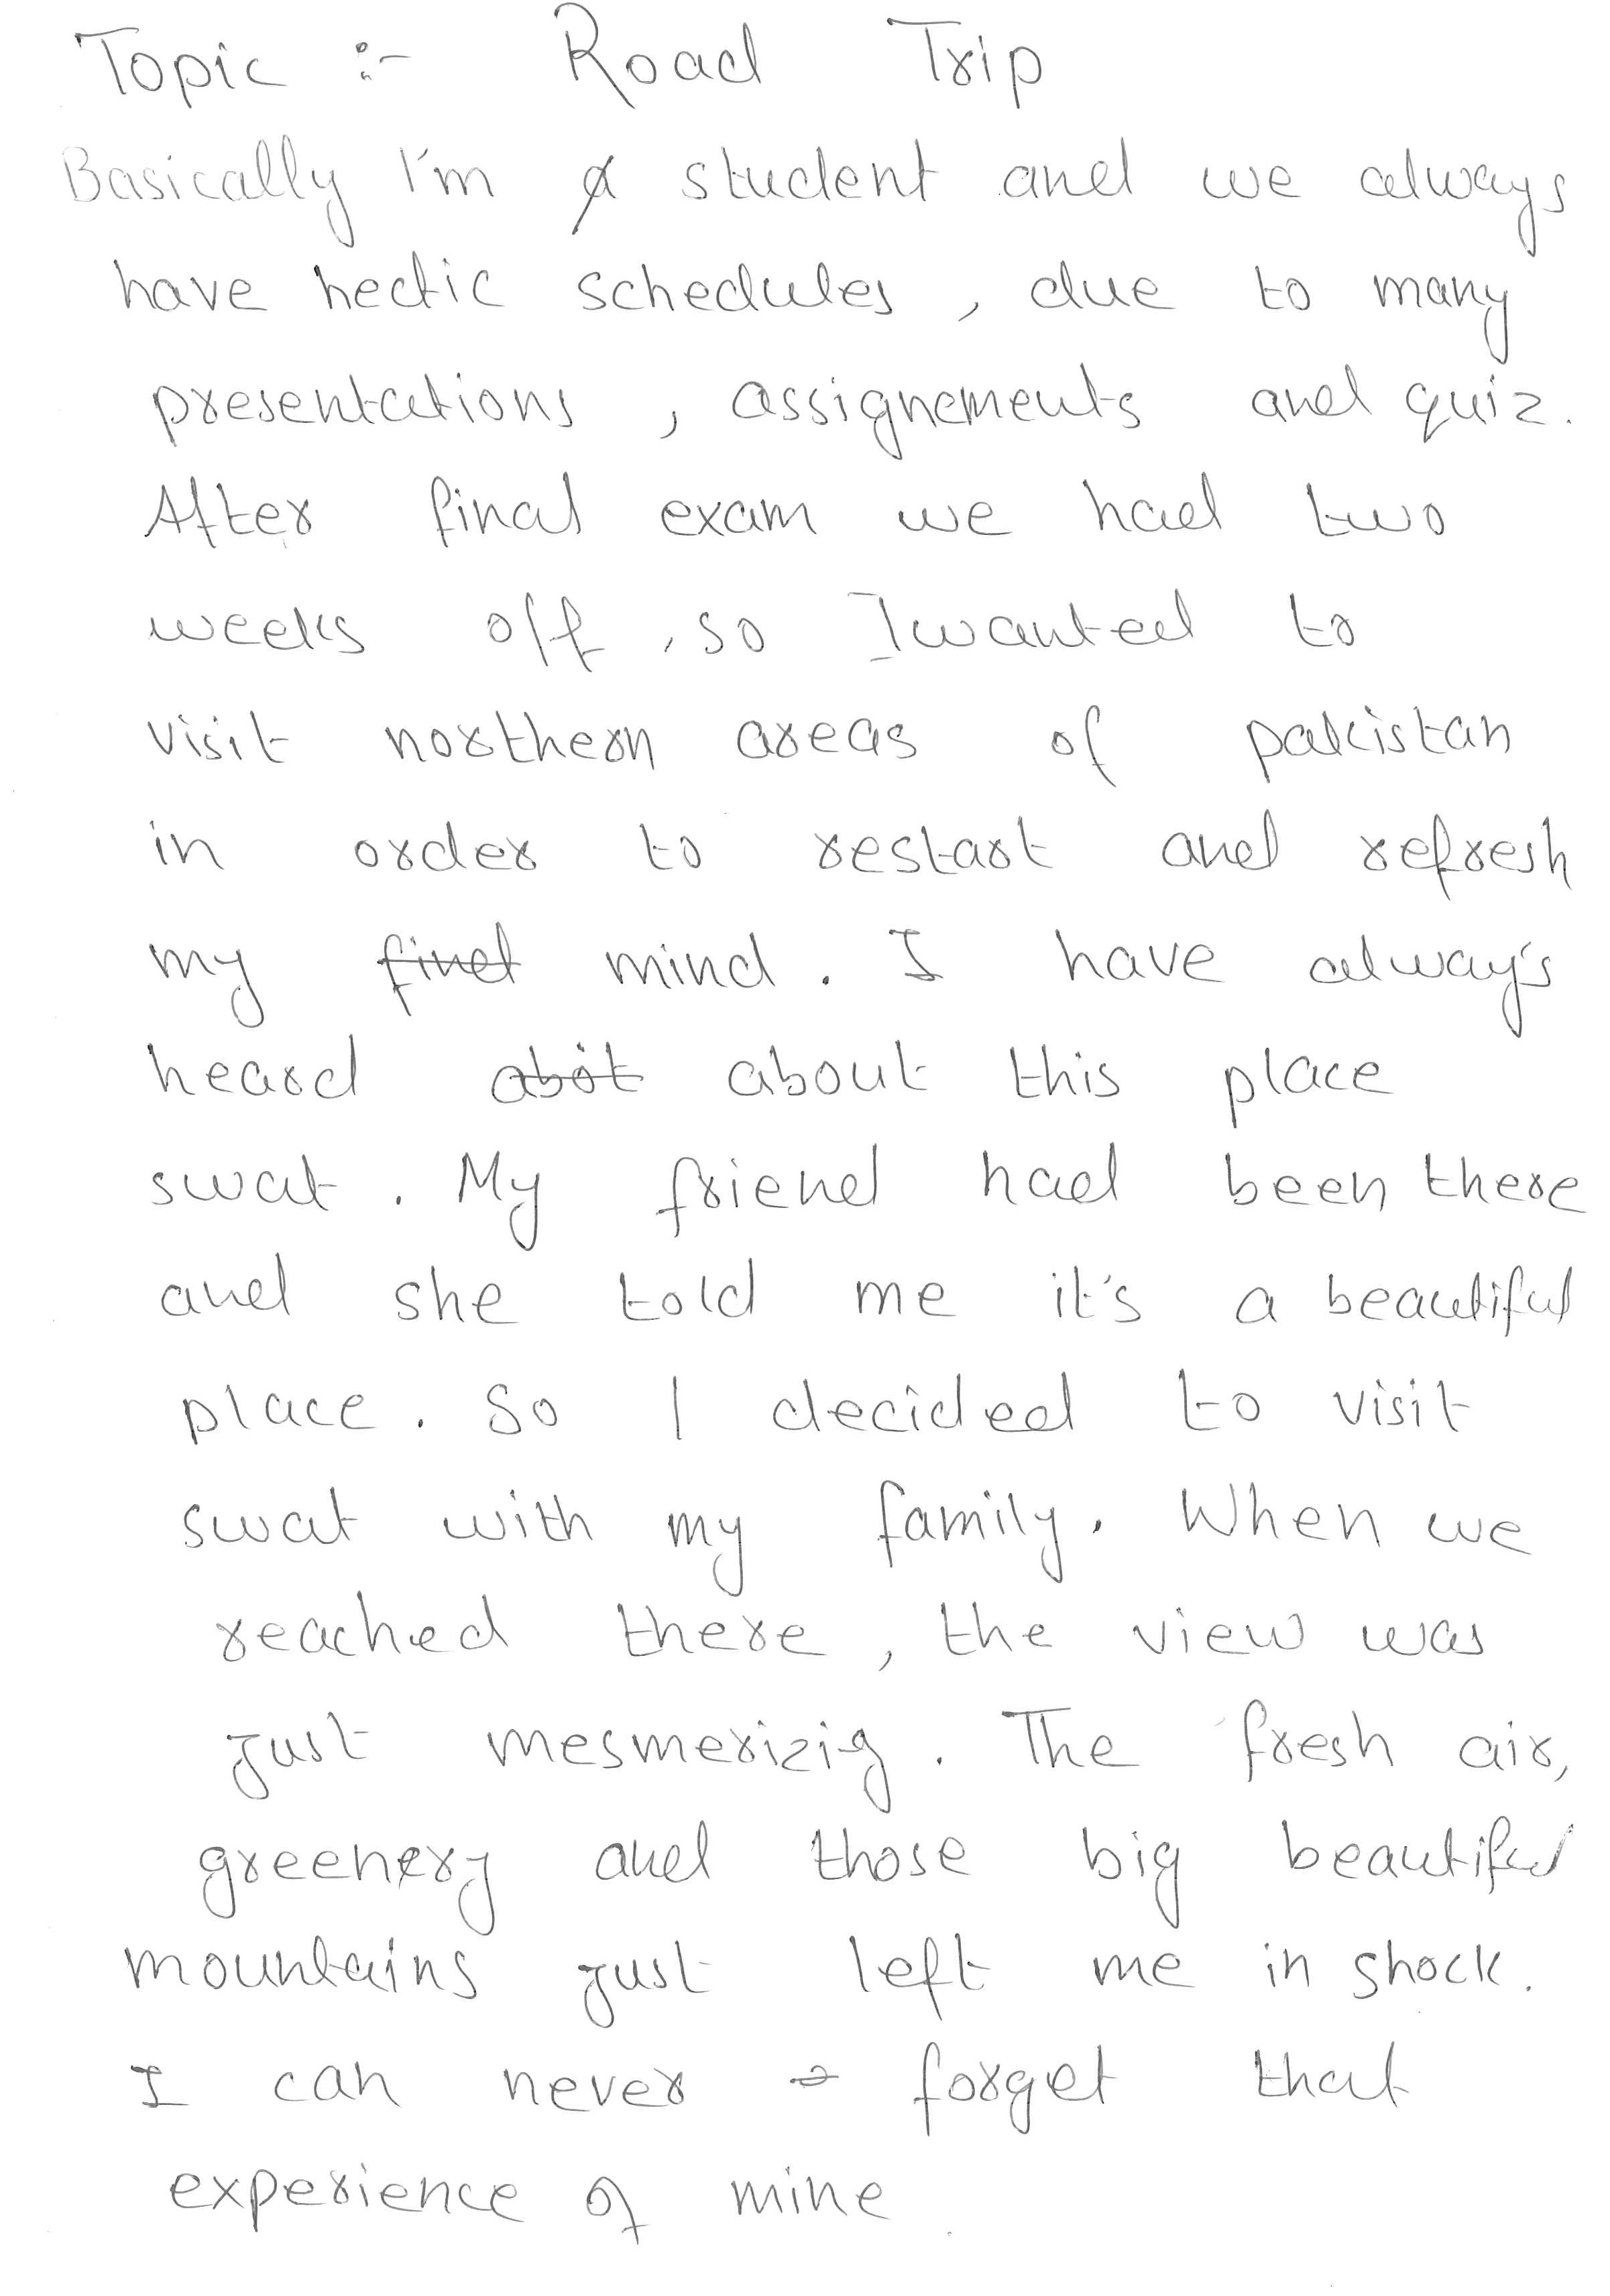 Topic :- Road Trip
Basically I'm a student and we always
have hectic schedules , due to many
presentations , assignements and quiz.
After final exam we had two
weeks off , so I wanted to
visit northern areas of pakistan
in order to restart and refresh
my final mind . I have always
heard abot about this place
swat . My friend had been there
and she told me it's a beautiful
place . So I decided to visit
swat with my family . When we
reached there , the view was
just mesmerizig . The fresh air,
greenery and those big beautiful
mountains just left me in shock .
I can never forget that
experience of mine .